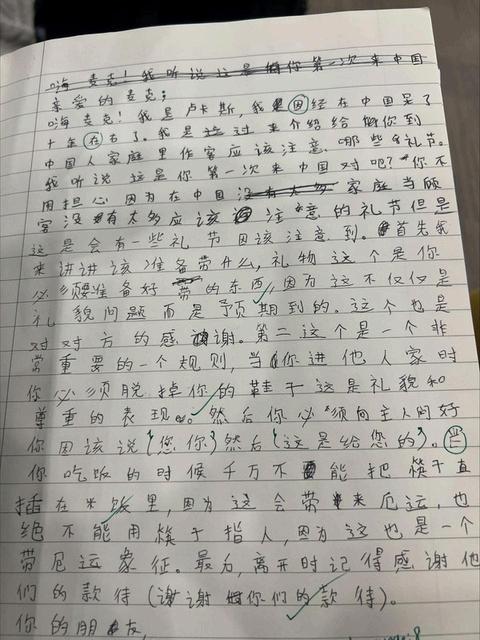 嗨麦克！我听说这是你第一次来中国
亲爱的麦克；
嗨麦克！我是卢卡斯，我因经在中国呆了
十年在右了。我是过来介绍给你到
中国人家庭里作客应该注意哪些礼节。
我听说这是你第一次来中国对吧？你不
用担心因为在中国没有太多家庭当顾
客没有太多应该注意的礼节但是
这是会有一些礼节因该注意到。首先我
来讲讲该准备带什么，礼物这个是你
必须要准备好带的东西，因为这不仅仅是
礼貌问题而是予期到的。这个也是
对对方的感谢。第二这个是一个非
常重要的一个规则，当你进他人家时
你必须脱掉你的鞋子这是礼貌和
尊重的表现。然后你必须向主人问好
你因该说(您你)然后(这是给您的)。
你吃饭的时候千万不能把筷子直
插在米饭里，因为这会带来厄运，也
绝不能用筷子指人，因为这也是一个
带厄运象征。最后，离开时记得感谢他
们的款待(谢谢你们的款待)。
你的朋友，